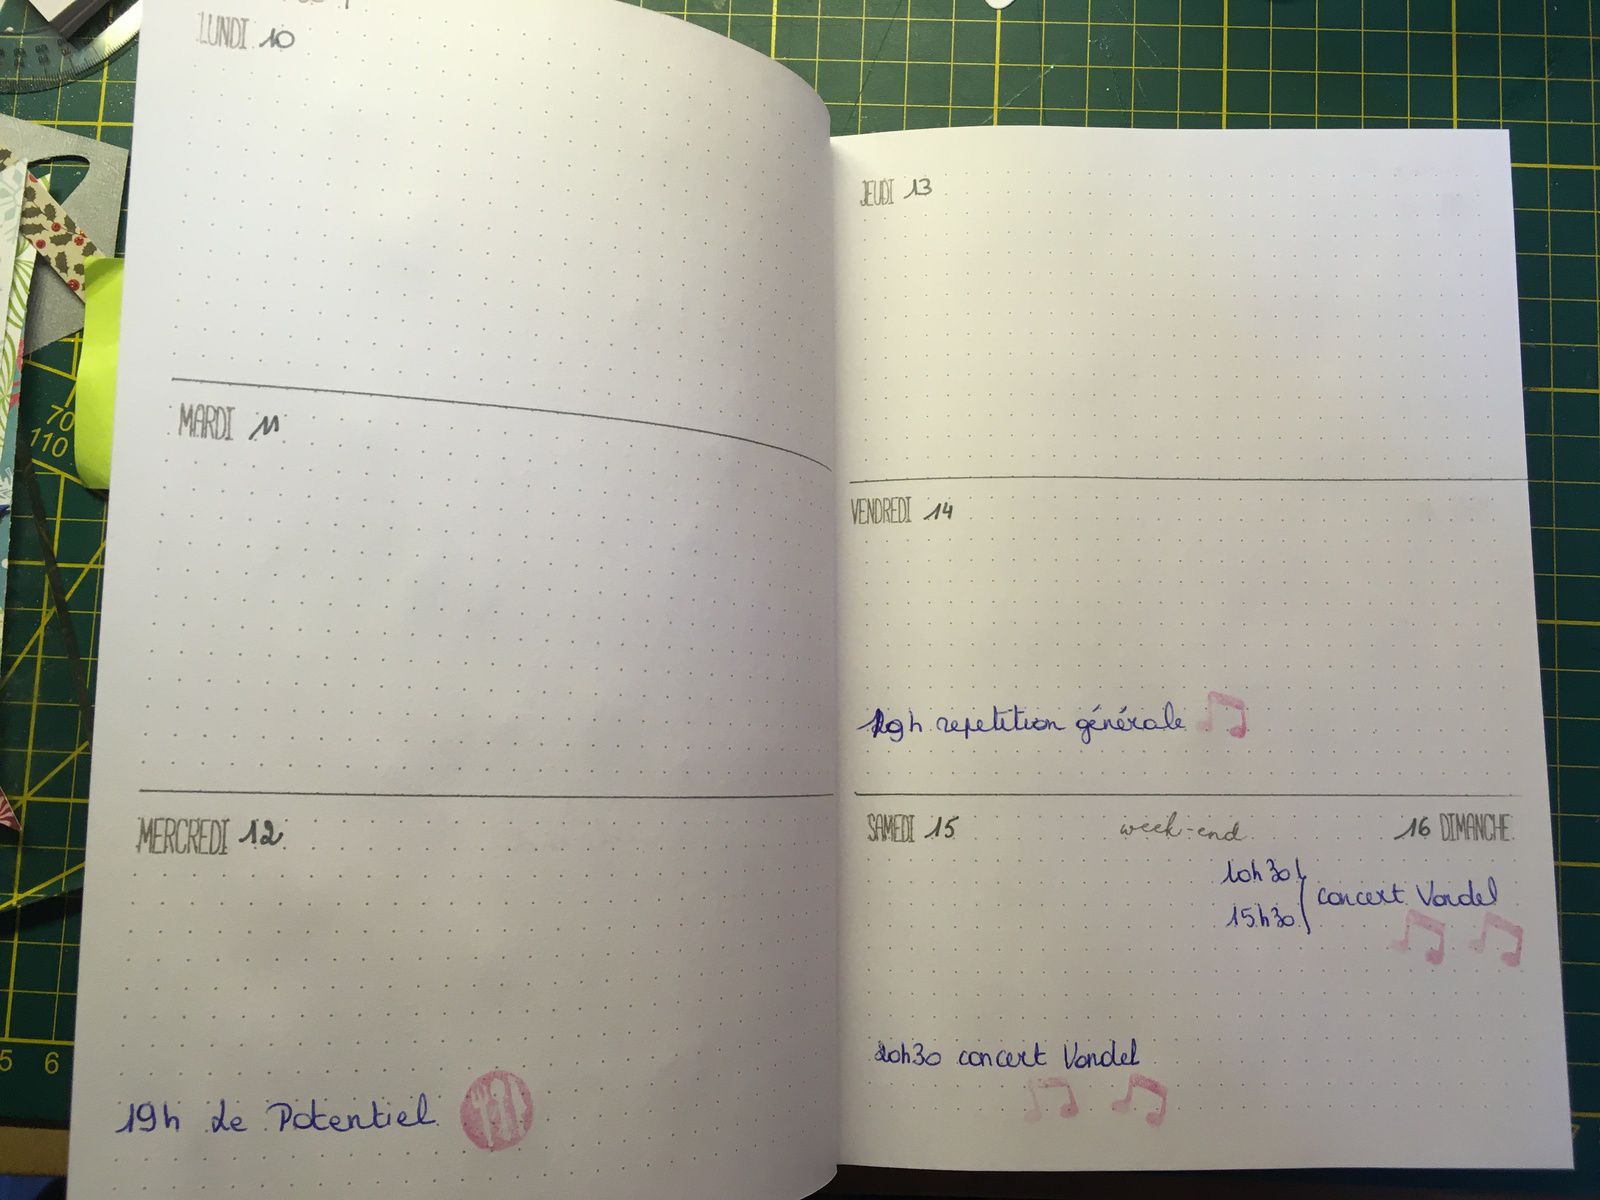 LUNDI 10
MARDI 11
MERCREDI 12
19h Le Potentiel
JEUDI 13
VENDREDI 14
repetition générale
SAMEDI 15 week-end 16 DIMANCHE
10h30
15h30 concert Vondel
20h30 concert Vondel
70
110
5 6